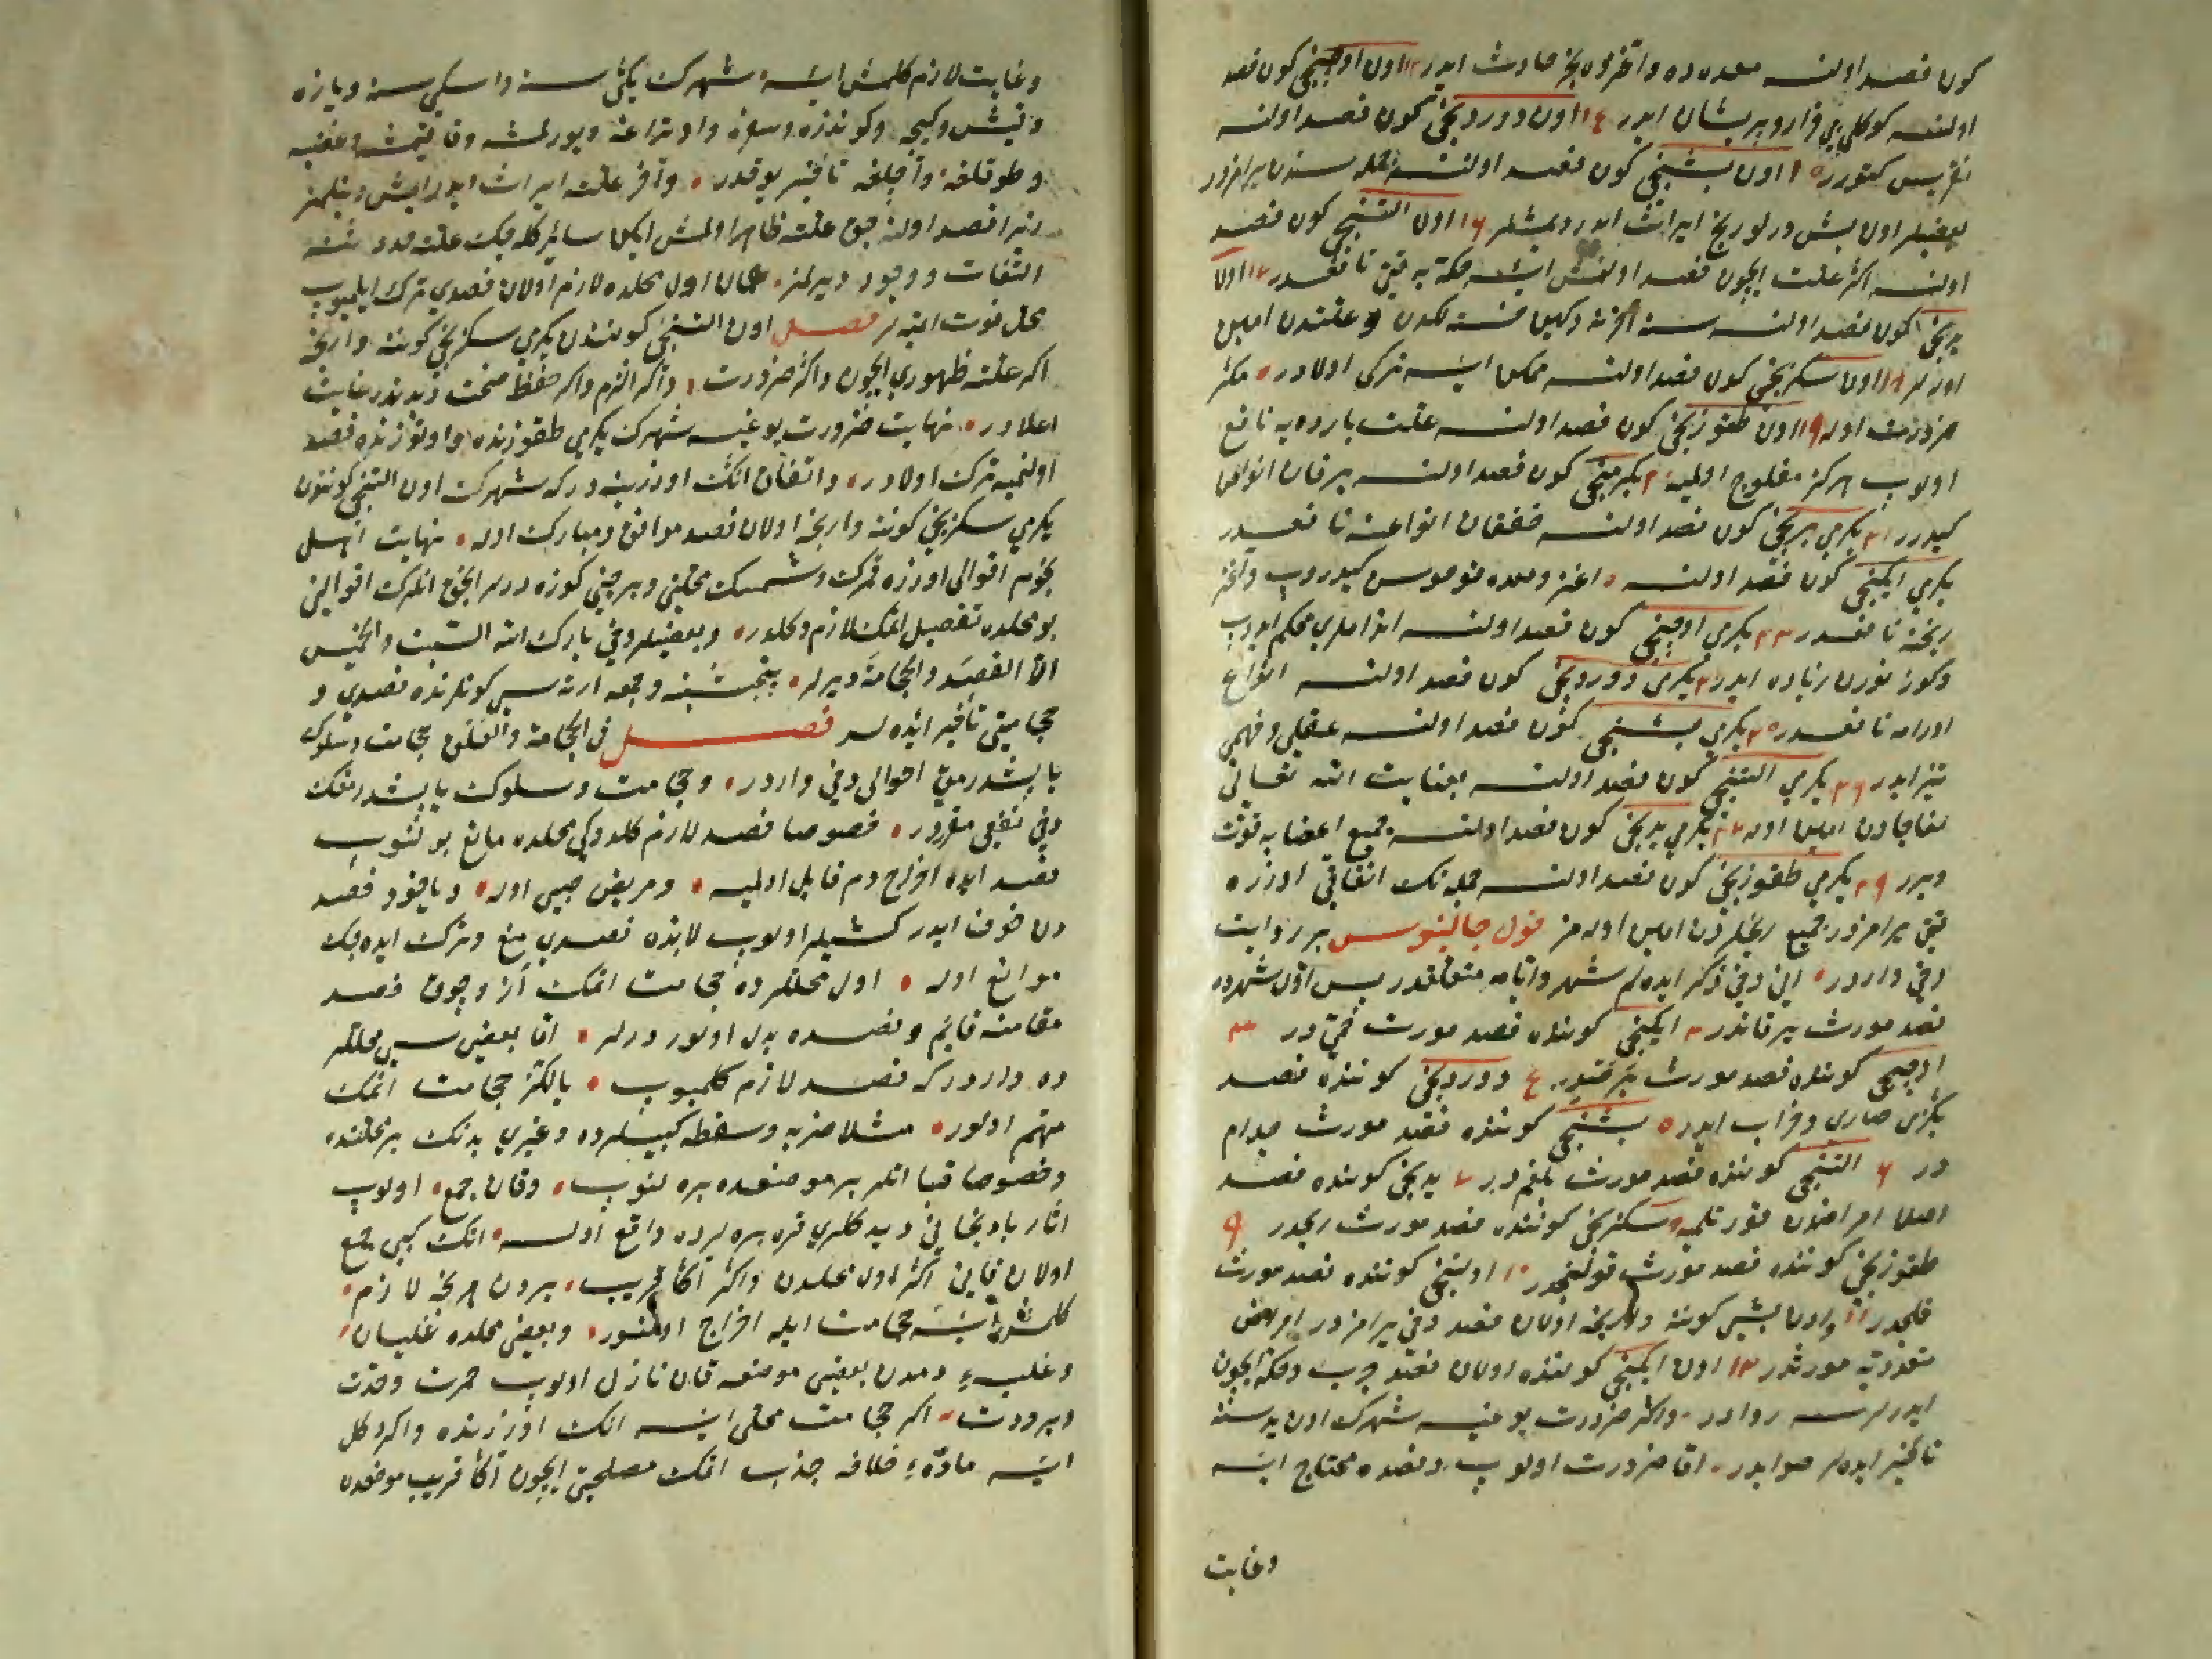 كون فصد اولنسه معده ده واغزده ريح حادث ايدر ١٣ اون اوچنجى كون فصد
اولنسه كوكلى بى قرار و پريشان ايدر ١٤ اون دوردنجى كون فصد اولنسه
كتورر ١٥ اون بشنجى كون فصد اولنسه جمله سندن يرامزدر
بعضيلر اون بش درلو ريح ايراث ايدر ديمشلر ١٦ اون التنجى كون فصد
اولنسه اكثر علت ايچون فصد اولنمش ايسه حكه يه قتى نافعدر ١٧ اون
يدنجى كون فصد اولنسه سنه اخرنه دكين خسته لكدن و علتدن امين
اولر ١٨ اون سكزنجى كون فصد اولنسه ممكن ايسه تركى اولادر مكر
ضرورت اوله ١٩ اون طقوزنجى كون فصد اولنسه علت بارده يه نافع
اولوب هركز مفلوج اولميه ٢٠ يكرمنجى كون فصد اولنسه يرقان انواعن
كيدرر ٢١ يكرمى برنجى كون فصد اولنسه خفقان انواعنه نافعدر
يكرمى ايكنجى كون فصد اولنسه اغز ومعده قوقوسن كيدروب واغز
ريحنه نافعدر ٢٣ يكرمى اوچنجى كون فصد اولنسه اندامى محكم ايدوب
وكوز نورن زياده ايدر ٢٤ يكرمى دوردنجى كون فصد اولنسه انواع
اورامه نافعدر ٢٥ يكرمى بشنجى كون فصد اولنسه عقلى وفهمى
تيز ايدر ٢٦ يكرمى التنجى كون فصد اولنسه بعنايت الله تعالى
مفاجادن امين اوله ٢٧ يكرمى يدنجى كون فصد اولنسه جميع اعضايه قوت
ويرر ٢٩ يكرمى طقوزنجى كون فصد اولنسه جمله نك اتفاقى اوزره
قتى يرامزدر جميع رنجلردن امين اولمز قول جالينوس بر روايت
دخى واردر انى دخى ذكر ايده لم شهر وايامه متعلقدر پس اول شهرده
فصد مورث يرقاندر ٢ ايكنجى كوننده فصد مورث حمى در ٣
اوچنجى كوننده فصد مورث ٤ دوردنجى كوننده فصد
بكزى صارى وخراب ايدر ٥ بشنجى كوننده فصد مورث جذام
در ٦ التنجى كوننده فصد مورث بلغمدر ٧ يدنجى كوننده فصد
اصلا امراضدن قورتلميه سكزنجى كوننده فصد مورث ريحدر ٩
طقوزنجى كوننده فصد مورث قولنجدر ١٠ اوننجى كوننده فصد مورث
فلجدر ١١ واون بشنجى كوننه وارنجه اولان فصد دخى يرامزدر امراض
متعدديه مورثدر ١٢ اون ايكنجى كوننده اولان فصد جرب وحكه ايچون
ايدرلرسه روادر واكر ضرورت يوغيسه شهرك اون يديسنه
تاخير ايده لر صوابدر اما ضرورت اولوب وفصده محتاج ايسه
وغايت
وغايت لازم كلمش ايسه شهرك يكى سنه واسكى سنه ويازه
وقيشه وكيجه وكوندزه وسفره واوتراغه ويورلمشه
وطوقلغه واچلغه تاخير يوقدر واخر علت ايراث ايدر ايش دينلمز
زيرا فصد اولنه جق علت ظاهر اولمش ايكن سائر كله جك علته
التفات ووجود ويرلمز همان اول محلده لازم اولان فصدى ترك ايلميوب
محل فوت ايتميه لر فصل اون التنجى كونندن يكرمى سكزنجى كوننه وارنجه
اكر علت ظهورى ايچون واكر ضرورت واكر الزم واكر حفظ صحت غايت
اعلادر نهايت ضرورت يوغيسه شهرك يكرمى طقوزنده واوتوزنده فصد
اولنميه ترك اولادر واتفاق انك اوزرينه در كه شهرك اون التنجى كونندن
يكرمى سكزنجى كوننه وارنجه اولان فصد موافق ومبارك اوله نهايت اهل
نجوم اقوالى اوزره قمرك وشمسك محلينى وبرجينى كوزه ددلر انجق انلرك اقوالنى
بو محلده تفصيل اتمك لازم دكلدر وبعضيلر دخى بارك الله السبت والخميس
الا الفصد والحجامة ديرلر پنجشنبه وجمعه ارته سى كونلرنده فصدى و
حجامتى تاخير ايده لر فصل فى الحجامة والعلق حجامت وسلوك
ياپشدرمق احوالى دخى واردر وحجامت وسلوك ياپشدرمغك
دخى نفعى مقرردر خصوصا فصد لازم كلدوكى محلده مانع بولنوب
فصد ايله اخراج دم قابل اولميه ومريض صبى اوله وياخود فصد
دن خوف ايدر كشيلر اولوب لابده فصدى منع وترك ايده جك
موانع اوله اول محللرده حجامت اتمك از وچوق فصد
مقامنه قايم وفصده بدل اولور ديرلر اما بعضى سبى محللر
ده واردر كه فصد لازم كلميوب يالكز حجامت اتمك
مهم اولور مثلا ضربه وسقطه كبيلرده وغيرى بدنك بر محلنده
وخصوصا قبا اتلر بر موضعده بره لنوب وقان جمع اولوب
اثار بادنجانى ديدكلرى قره بره لرده واقع اولسه انك كبى جمع
اولان قانى اكر اول محلدن واكر اكا قريب يردن هر نجه لازم
كلمش ايسه حجامت ايله اخراج اولنور وبعضى محلده غليان
وغلبهٔ دمدن بعضى موضعه قان نازل اولوب حمرت وحدت
وبرودت اكر حجامت محلى ايسه انك اوزرنده واكر دكل
ايسه مادّهٔ خلافه جذب اتمك مصلحتى ايچون اكا قريب موضعدن